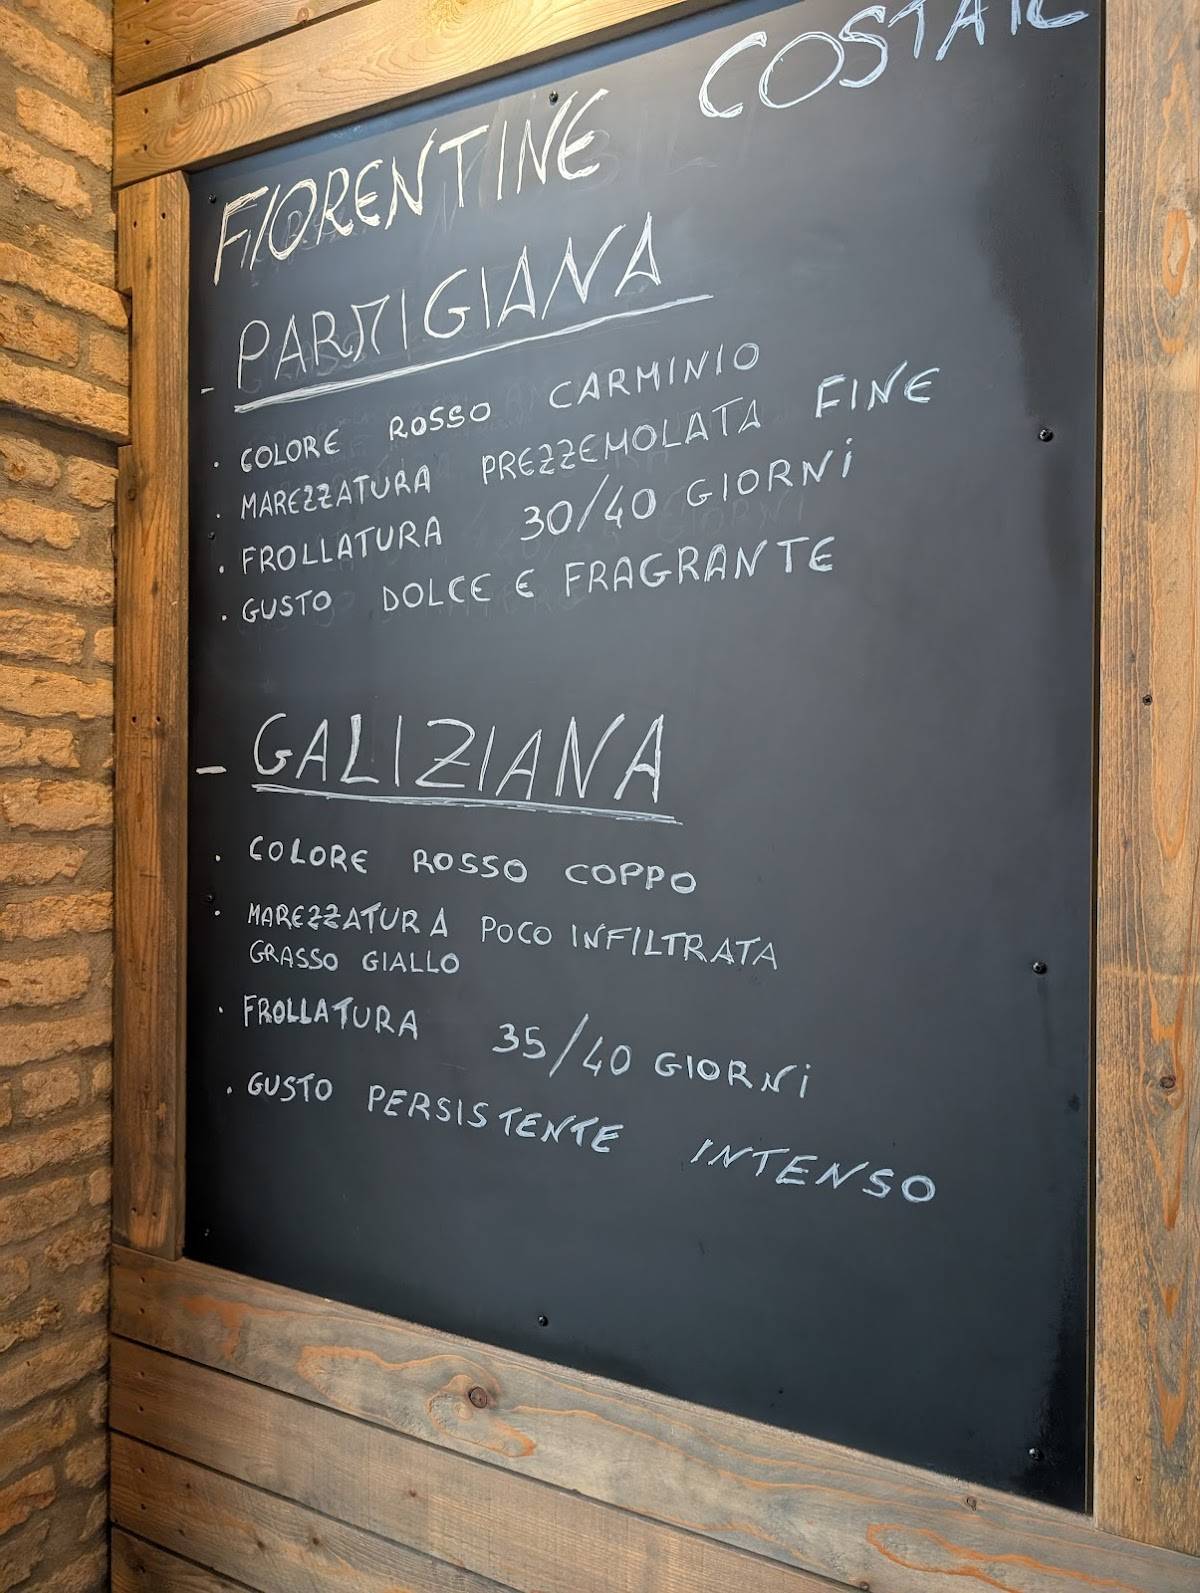 FIORENTINE
- PARMIGIANA
. COLORE ROSSO CARMINIO
. MAREZZATURA PREZZEMOLATA FINE
. FROLLATURA 30/40 GIORNi
. GUSTO DOLCE E FRAGRANTE
- GALIZIANA
. COLORE ROSSO COPPO
. MAREZZATURA POCO INFILTRATA
GRASSO GIALLO
. FROLLATURA 35/40 GIORNi
. GUSTO PERSISTENTE INTENSO